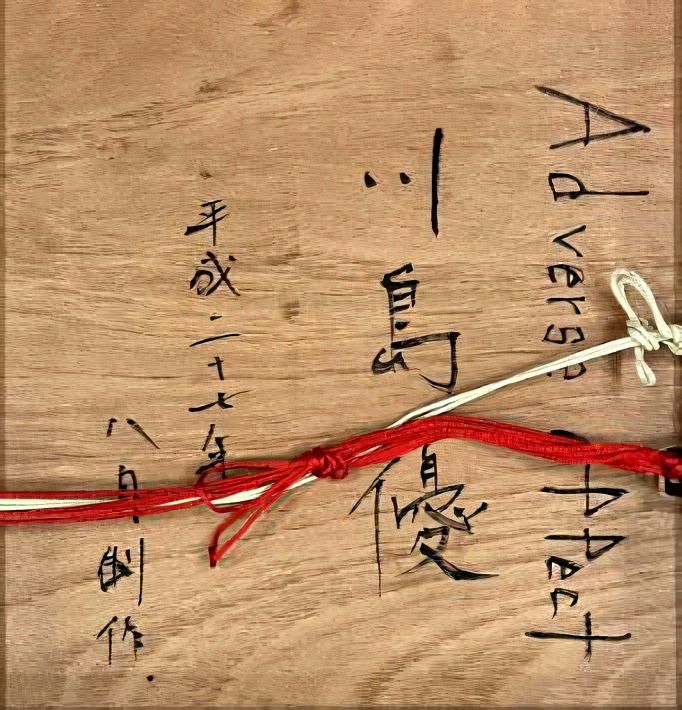 Adverse effect
川島優
平成二十七年
八月制作.